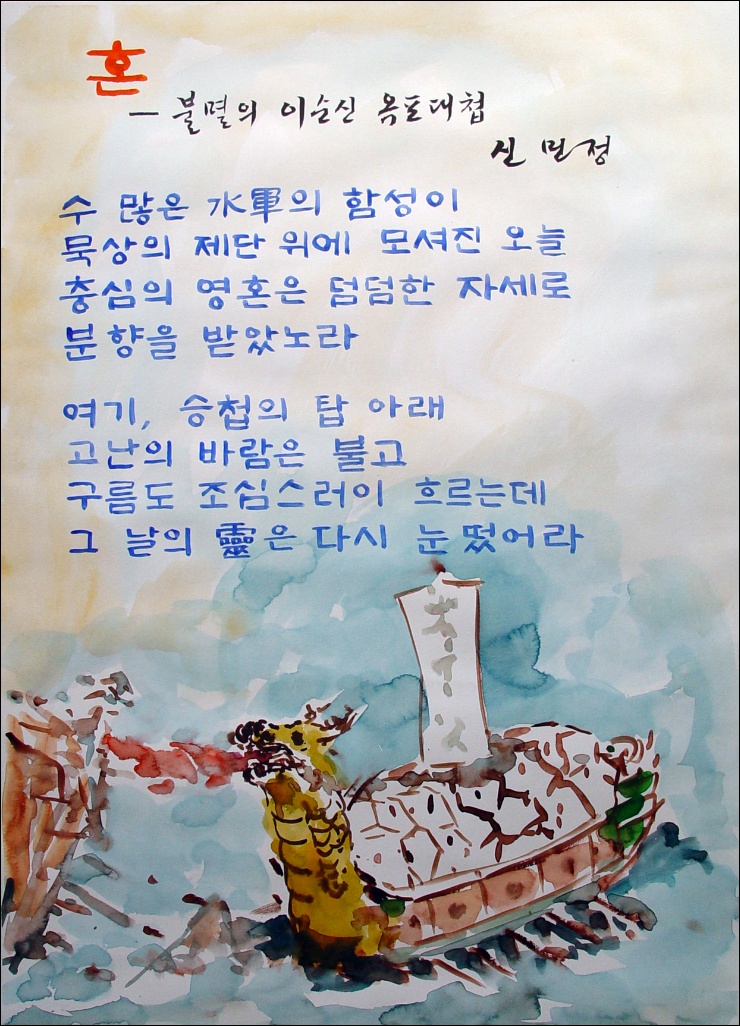 혼
— 불멸의 이순신 옥포대첩
신 민정
수 많은 水軍의 함성이
묵상의 제단 위에 모셔진 오늘
충심의 영혼은 덤덤한 자세로
분향을 받았노라
여기, 승첩의 탑 아래
고난의 바람은 불고
구름도 조심스러이 흐르는데
그 날의 靈은 다시 눈 떴어라